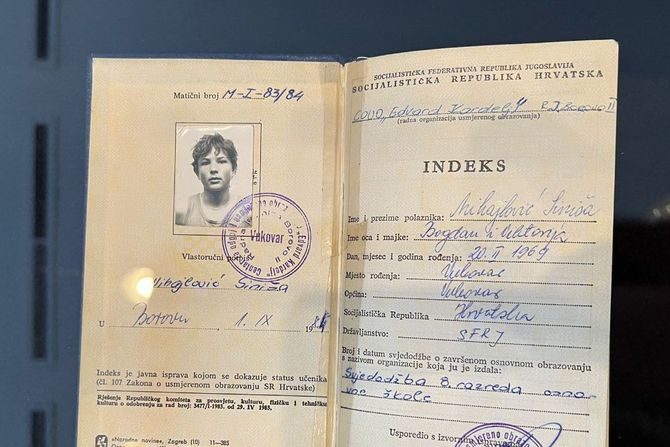 Matični broj M-I-83/84
Vukovar
Vlastoručni potpis
Mihajlović Siniša
U Borovu, 1. IX 198
Indeks je javna isprava kojom se dokazuje status učenika
(čl. 107 Zakona o usmjerenom obrazovanju SR Hrvatske)
Rješenje Republičkog komiteta za prosvjetu, kulturu, fizičku i tehničku
kulturu o odobrenju za rad broj: 3477/1-1983. od 29. IV 1983.
»Narodne novine«, Zagreb (10) 11—385
SOCIJALISTIČKA FEDERATIVNA REPUBLIKA JUGOSLAVIJA
SOCIJALISTIČKA REPUBLIKA HRVATSKA
COUO „Edvard Kardelj" R.J. Borovo II
(radna organizacija usmjerenog obrazovanja)
INDEKS
Ime i prezime polaznika: Mihajlović Siniša
Ime oca i majke: Bogdan i Viktorija
Dan, mjesec i godina rođenja: 20. II 1969
Mjesto rođenja: Vukovar
Općina: Vukovar
Socijalistička Republika: Hrvatska
Državljanstvo: SFRJ
Broj i datum svjedodžbe o završenom osnovnom obrazovanju
s nazivom organizacije koja ju je izdala:
Svjedodžba 8. razreda osno-
vne škole
Usporedio s izvornim